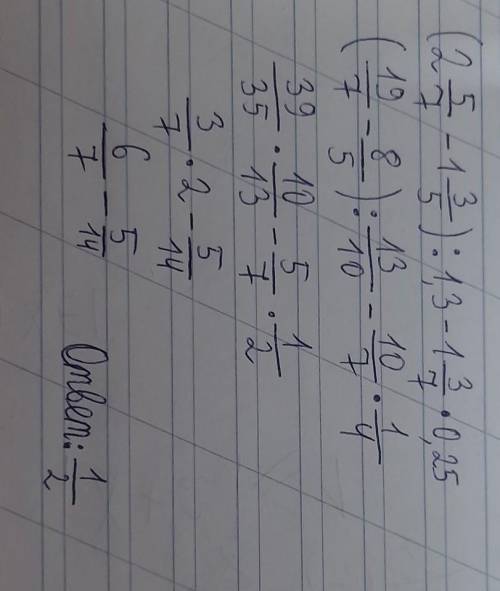 (2 5/7 - 1 3/5) : 1,3 - 1 3/7 · 0,25
(19/7 - 8/5) : 13/10 - 10/7 · 1/4
39/35 · 10/13 - 5/7 · 1/2
3/7 · 2 - 5/14
6/7 - 5/14
Ответ: 1/2